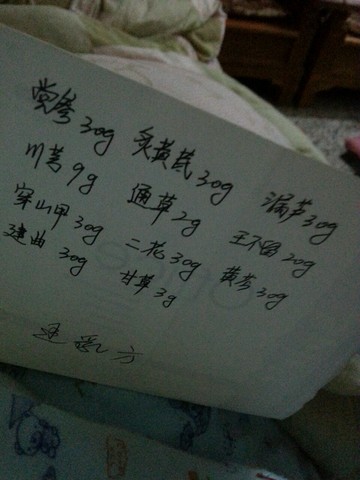 党参30g 炙黄芪30g 漏芦30g
川芎9g 通草2g 王不留20g
穿山甲30g 二花30g 黄芩30g
建曲30g 甘草3g
乳方